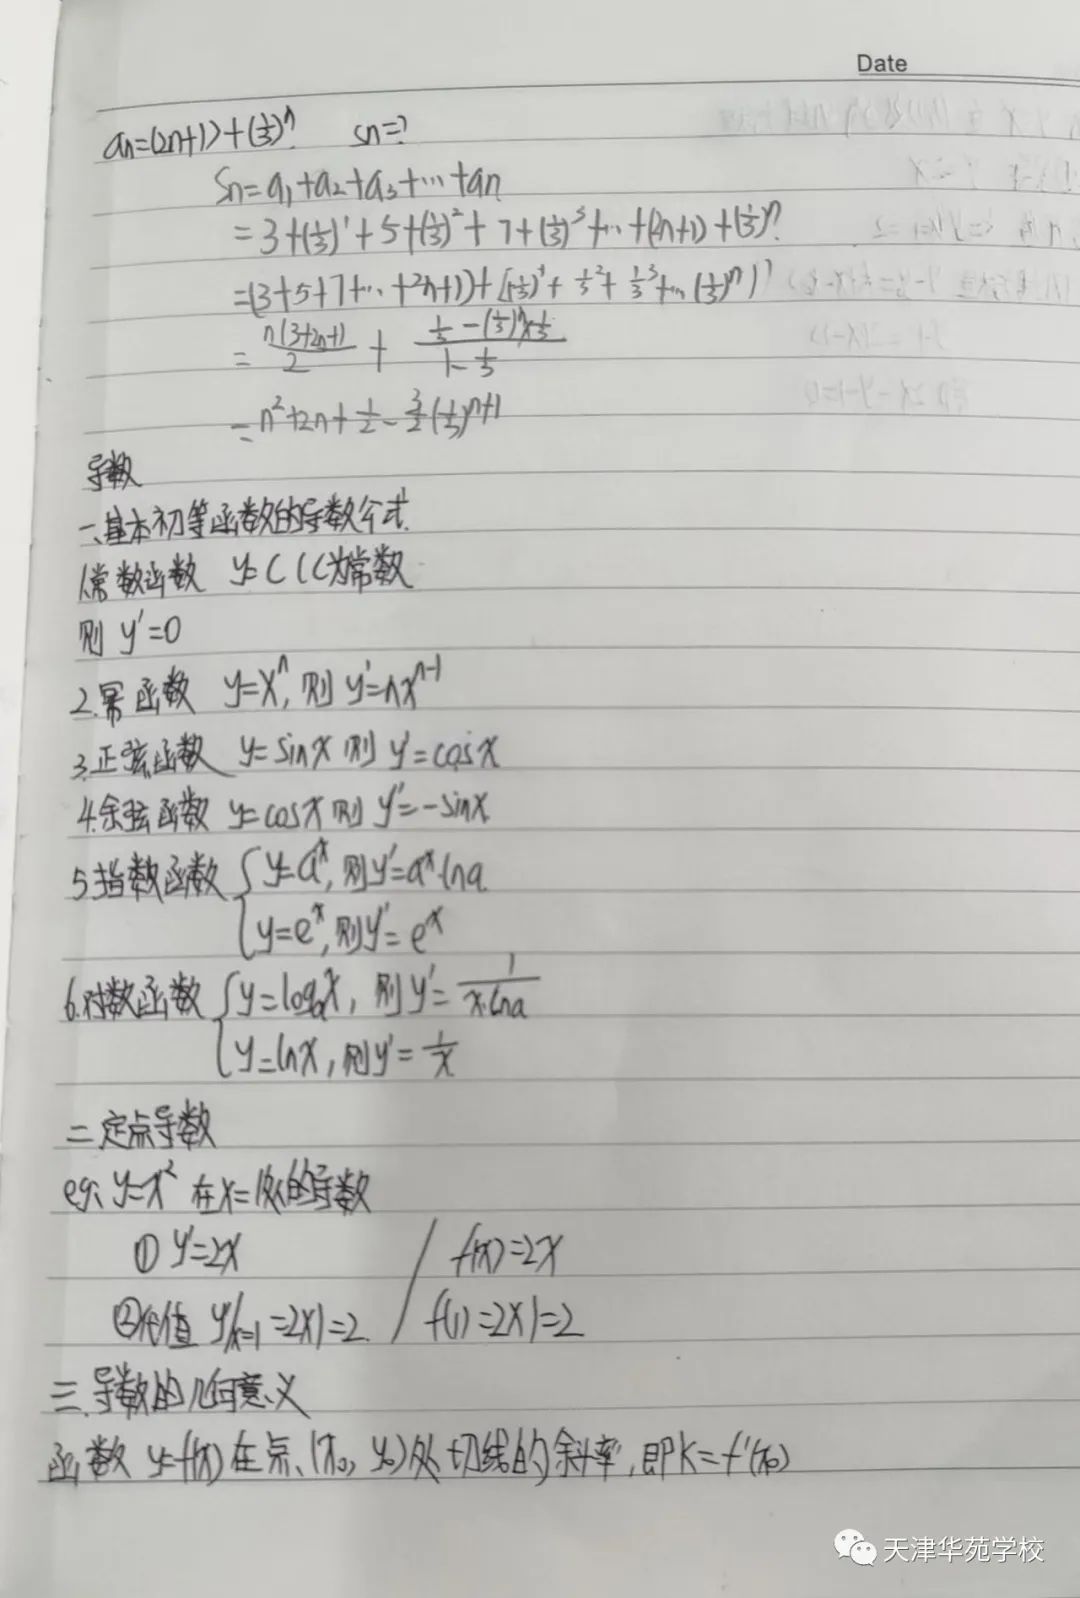 Date
an=(2n+1)+(1/3)^n   sn=?
Sn=a₁+a₂+a₃+…+an
=3+(1/3)¹+5+(1/3)²+7+(1/3)³+…+(2n+1)+(1/3)^n
=(3+5+7+…+2n+1)+[(1/3)¹+1/3²+1/3³+…(1/3)^n]
=n(3+2n+1)/2 + (1/3-(1/3)^n×1/3)/(1-1/3)
=n²+2n+1/2-3/2(1/3)^(n+1)
导数
一、基本初等函数的导数公式.
1.常数函数 y=C (C为常数
则 y'=0
2.幂函数 y=x^n, 则 y'=nx^(n-1)
3.正弦函数 y=sinx 则 y'=cosx
4.余弦函数 y=cosx 则 y'=-sinx
5.指数函数 {y=a^x, 则y'=a^x·lna
y=e^x, 则y'=e^x
6.对数函数 {y=logₐx, 则y'=1/(x·lna)
y=lnx, 则y'=1/x
二、定点导数
eg、y=x² 在x=1处的导数
① y'=2x / f(x)=2x
②代值 y'|x=1 =2×1=2. / f(1)=2×1=2
三、导数的几何意义
函数 y=f(x)在点(x₀, y₀)处切线的斜率, 即k=f'(x₀)
天津华苑学校